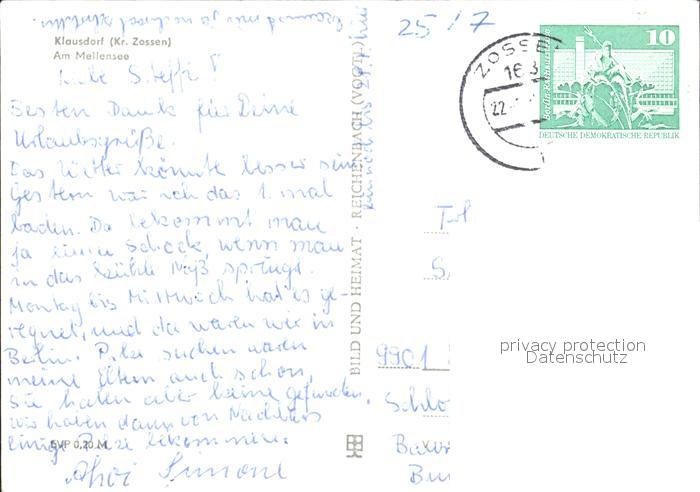 25/7
Klausdorf (Kr. Zossen)
Am Mellensee
Liebe Steffi!
Besten Dank für Deine
Urlaubsgrüße.
Das Wetter könnte besser sein
Gestern war ich das 1. mal
baden. Da bekommt man
ja einen Schock, wenn man
in das kühle Naß springt.
Montag bis Mittwoch hat es ge-
regnet, und da waren wir in
Berlin. Pilze suchen waren
meine Eltern auch schon,
sie haben aber keine gefunden,
wir haben dann von Nachbars
einige Pilze bekommen.
Ahoi Simone
EVP 0,20 M
BILD UND HEIMAT · REICHENBACH (VOGTL.)
ZOSSEN
163
22.
10
DEUTSCHE DEMOKRATISCHE REPUBLIK
9901
Schlo
privacy protection
Datenschutz